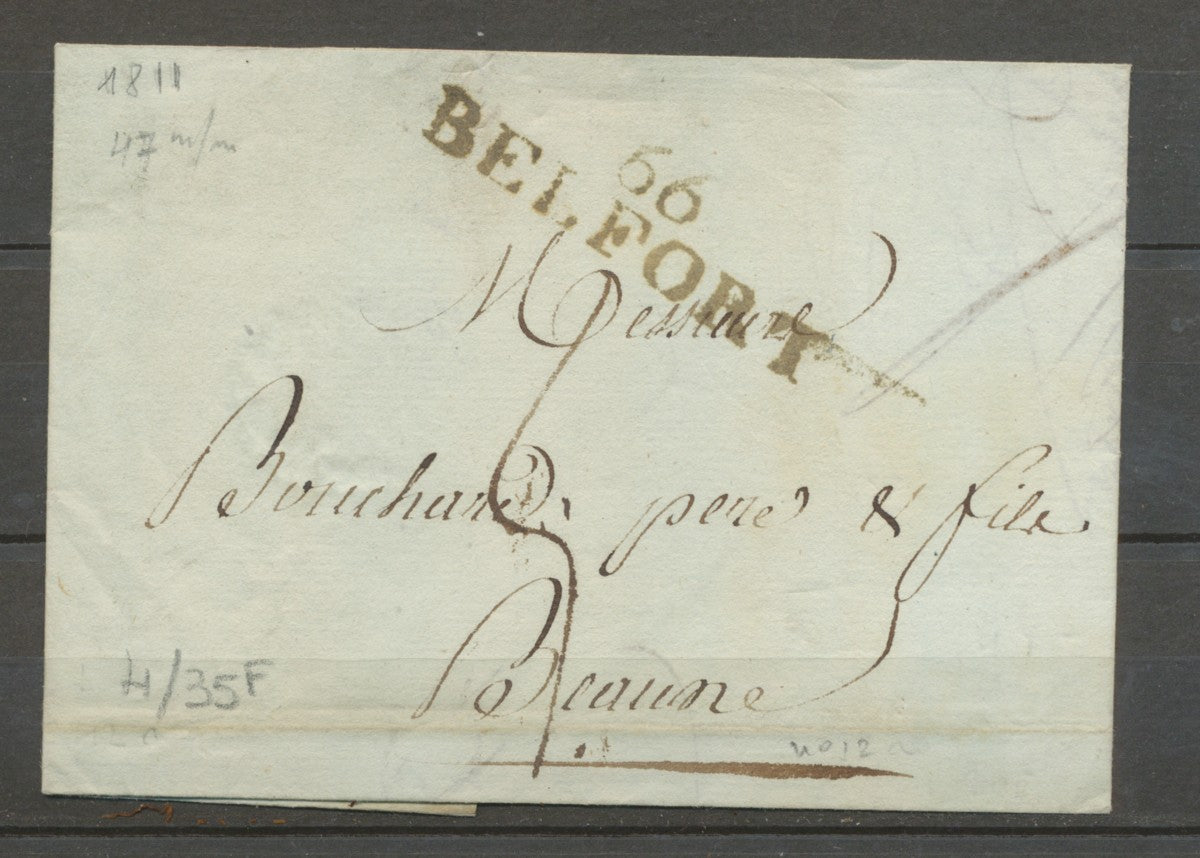 1811
47 m/m
66
BELFORT
Messieurs
Bouchard pere & fils
Beaune
4/35F